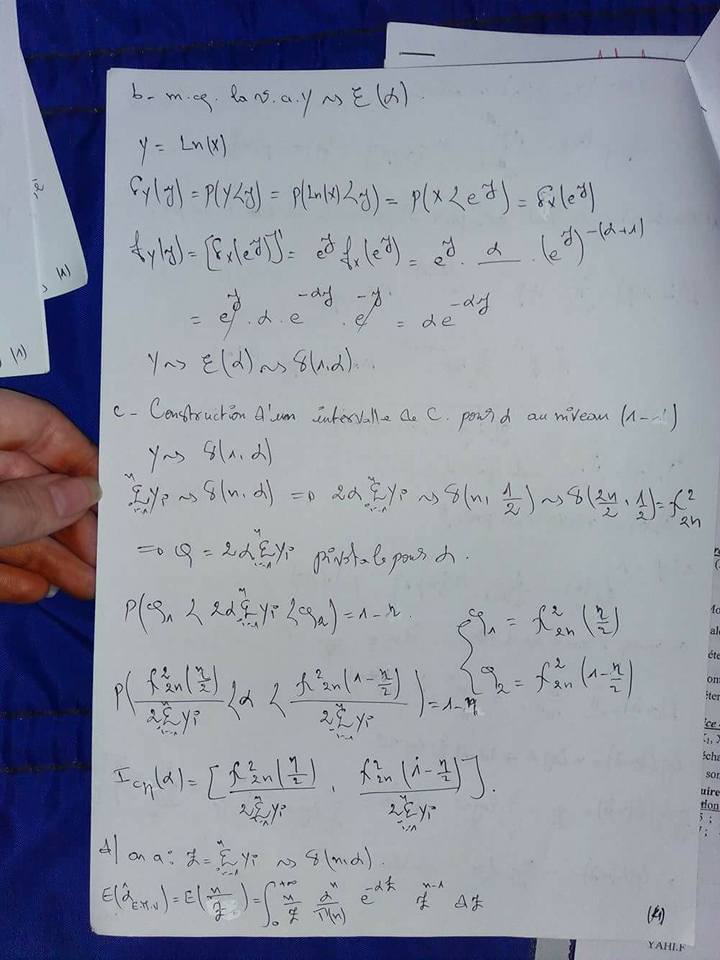 b- m.q. la v.a. Y ~> ℰ(α).
Y = Ln(X)
F_Y(y) = P(Y<y) = P(Ln(X)<y) = P(X<e^y) = F_X(e^y)
f_Y(y) = [F_X(e^y)]' = e^y f_X(e^y) = e^y . α . (e^y)^{-(α+1)}
= e^y . α . e^{-αy} . e^{-y} = αe^{-αy}
Y ~> ℰ(α) ~> γ(1,α).
c- Construction d'un intervalle de C. pour α au niveau (1-
Y ~> γ(1,α)
Σ_{i=1}^n Yi ~> γ(n,α) => 2α Σ_{i=1}^n Yi ~> γ(n, 1/2) ~> γ(2n/2, 1/2) = χ²_{2n}
=> Q = 2α Σ_{i=1}^n Yi pivotale pour α.
P(q_1 < 2α Σ_{i=1}^n Yi < q_2) = 1-η. { q_1 = χ²_{2n}(η/2)
q_2 = χ²_{2n}(1-η/2)
P( χ²_{2n}(η/2) / 2Σ_{i=1}^n Yi < α < χ²_{2n}(1-η/2) / 2Σ_{i=1}^n Yi ) = 1-η
I_{cη}(α) = [ χ²_{2n}(η/2) / 2Σ_{i=1}^n Yi , χ²_{2n}(1-η/2) / 2Σ_{i=1}^n Yi ].
d/ on a: Z = Σ_{i=1}^n Yi ~> γ(n,α).
E(α̂_{E.M.V}) = E(n/Z) = ∫_0^{+∞} n/Z α^n/Γ(n) e^{-αZ} Z^{n-1} dZ
(4)
YAHI.F